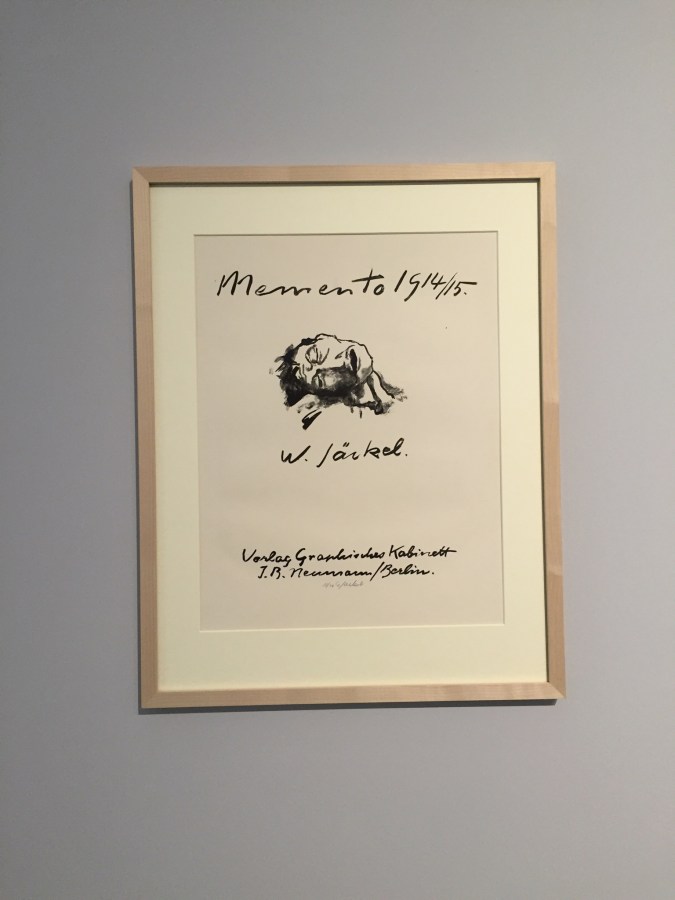 Memento 1914/15.
W. Jäckel.
Verlag Graphisches Kabinett
I.B. Neumann/Berlin.